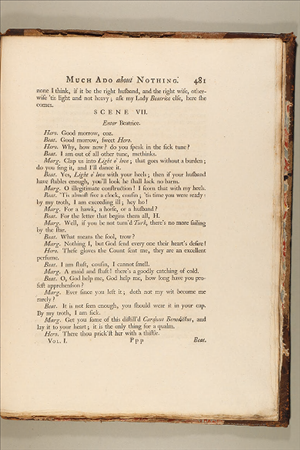 MUCH ADO about NOTHING. 481
none I think, if it be the right husband, and the right wife, other-
wise 'tis light and not heavy; ask my Lady Beatrice else, here she
comes.
SCENE VII.
Enter Beatrice.
Hero. Good morrow, coz.
Beat. Good morrow, sweet Hero.
Hero. Why, how now? do you speak in the sick tune?
Beat. I am out of all other tune, methinks.
Marg. Clap us into Light o' love; that goes without a burden;
do you sing it, and I'll dance it.
Beat. Yes, Light o' love with your heels; then if your husband
have stables enough, you'll look he shall lack no barns.
Marg. O illegitimate construction! I scorn that with my heels.
Beat. 'Tis almost five a-clock, cousin; 'tis time you were ready:
by my troth, I am exceeding ill; hey ho!
Marg. For a hawk, a horse, or a husband?
Beat. For the letter that begins them all, H.
Marg. Well, if you be not turn'd Turk, there's no more sailing
by the star.
Beat. What means the fool, trow?
Marg. Nothing I, but God send every one their heart's desire!
Hero. These gloves the Count sent me, they are an excellent
perfume.
Beat. I am stuft, cousin, I cannot smell.
Marg. A maid and stuft! there's a goodly catching of cold.
Beat. O, God help me, God help me, how long have you pro-
fest apprehension?
Marg. Ever since you left it; doth not my wit become me
rarely?
Beat. It is not seen enough, you should wear it in your cap.
By my troth, I am sick.
Marg. Get you some of this distill'd Carduus Benedictus, and
lay it to your heart; it is the only thing for a qualm.
Hero. There thou prick'st her with a thistle.
VOL. I. Ppp Beat.